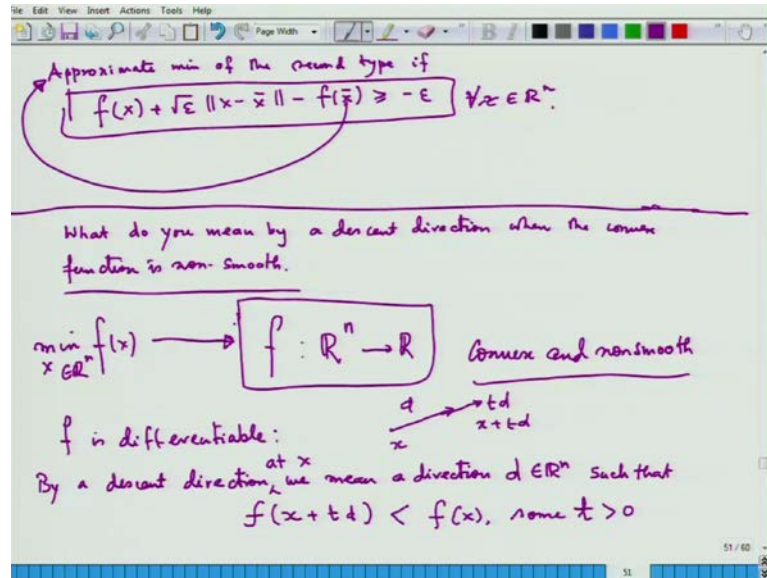 File Edit View Insert Actions Tools Help
Page Width
Approximate min of the second type if
f(x) + √ε ||x - x̄|| - f(x̄) ≥ -ε ∀x ∈ ℝⁿ.
What do you mean by a descent direction when the convex
function is non-smooth.
min f(x) → f : ℝⁿ → ℝ Convex and nonsmooth
x ∈ ℝⁿ
d td
x x+td
f is differentiable:
By a descent direction, at x we mean a direction d ∈ ℝⁿ such that
f(x + td) < f(x), some t > 0
51/60
51